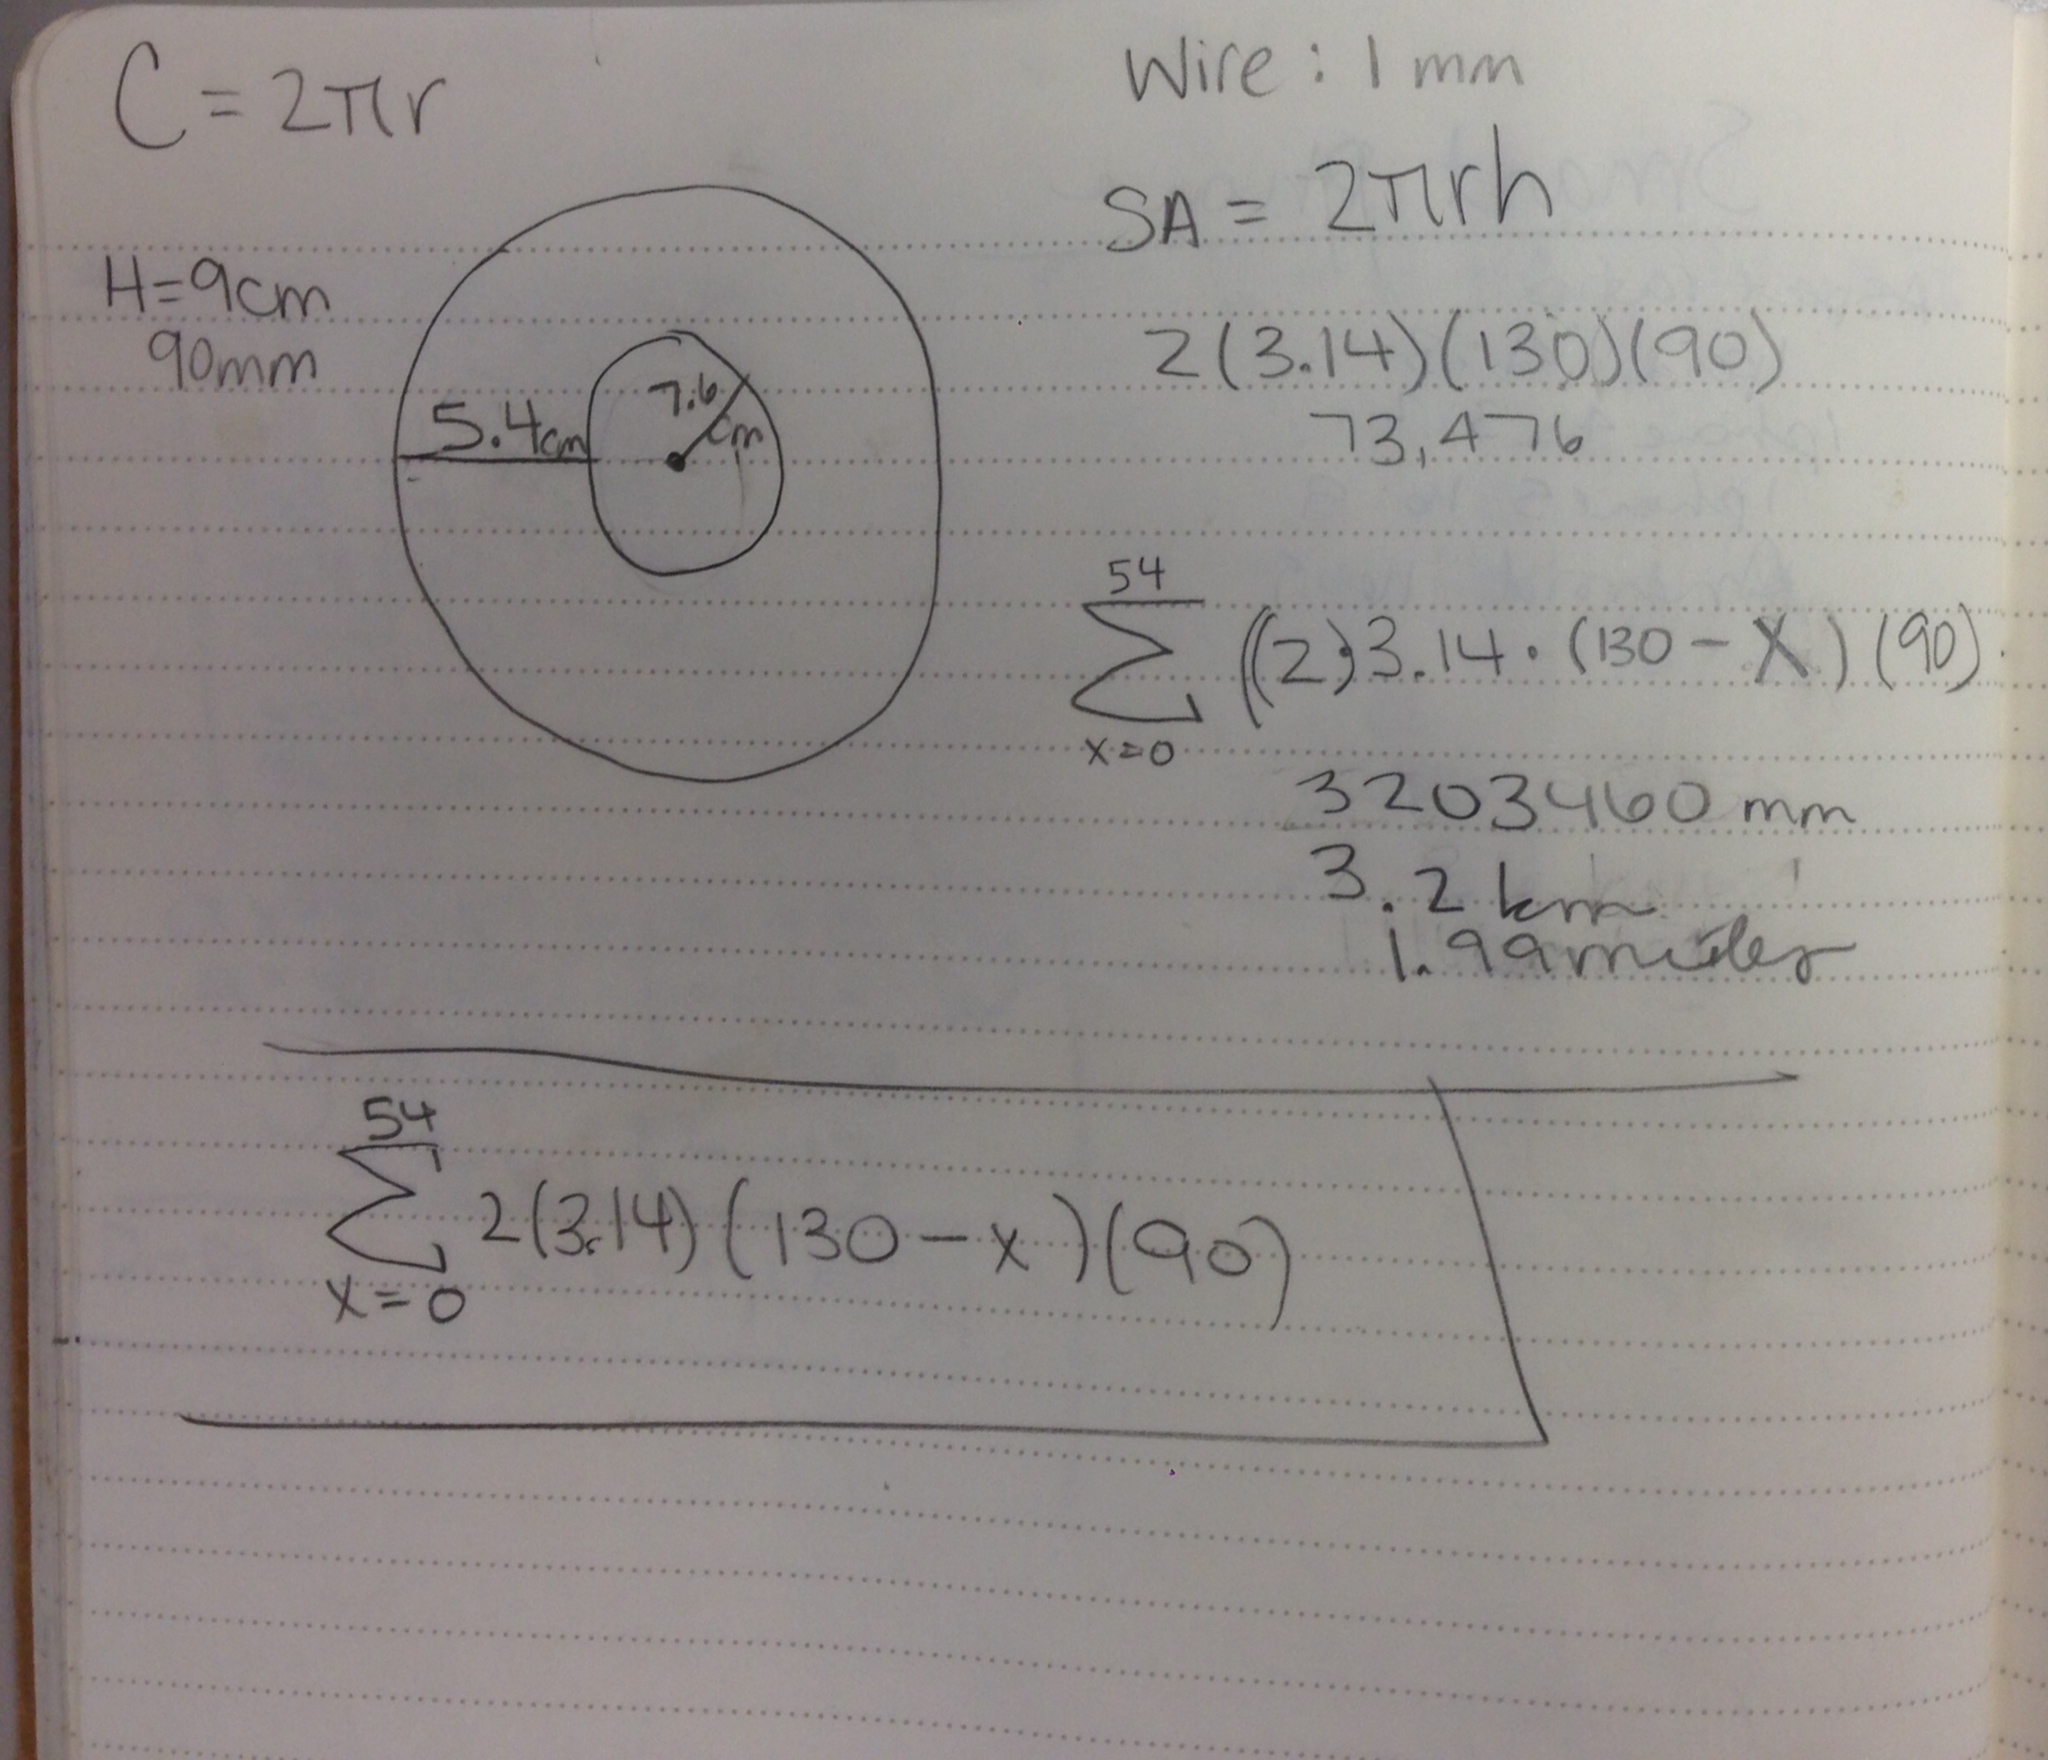 C = 2πr
Wire: 1 mm
SA = 2πrh
H=9cm
90mm
7.6
cm
5.4cm
2(3.14)(130)(90)
73,476
54
∑ ((2)·3.14·(130-X)(90)
x=0
3203460 mm
3.2 km
1.99 miles
54
∑ 2(3.14)(130-x)(90)
x=0